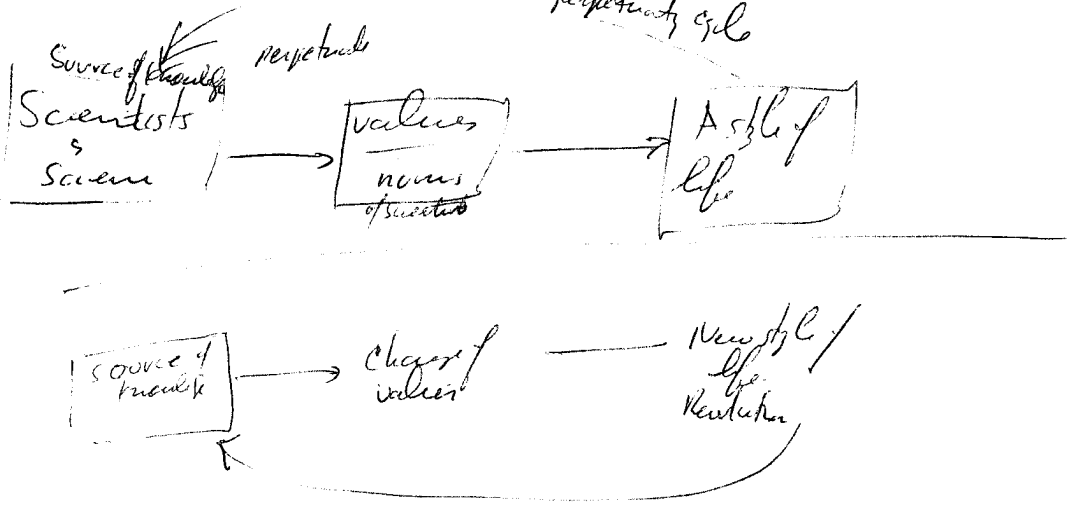 perpetuates cycle
Source of knowledge perpetuate
Scientists
&
Science
values
norms
of scientists
A style of
life
source of
knowledge
Change of
values
New style of
life
Revolution